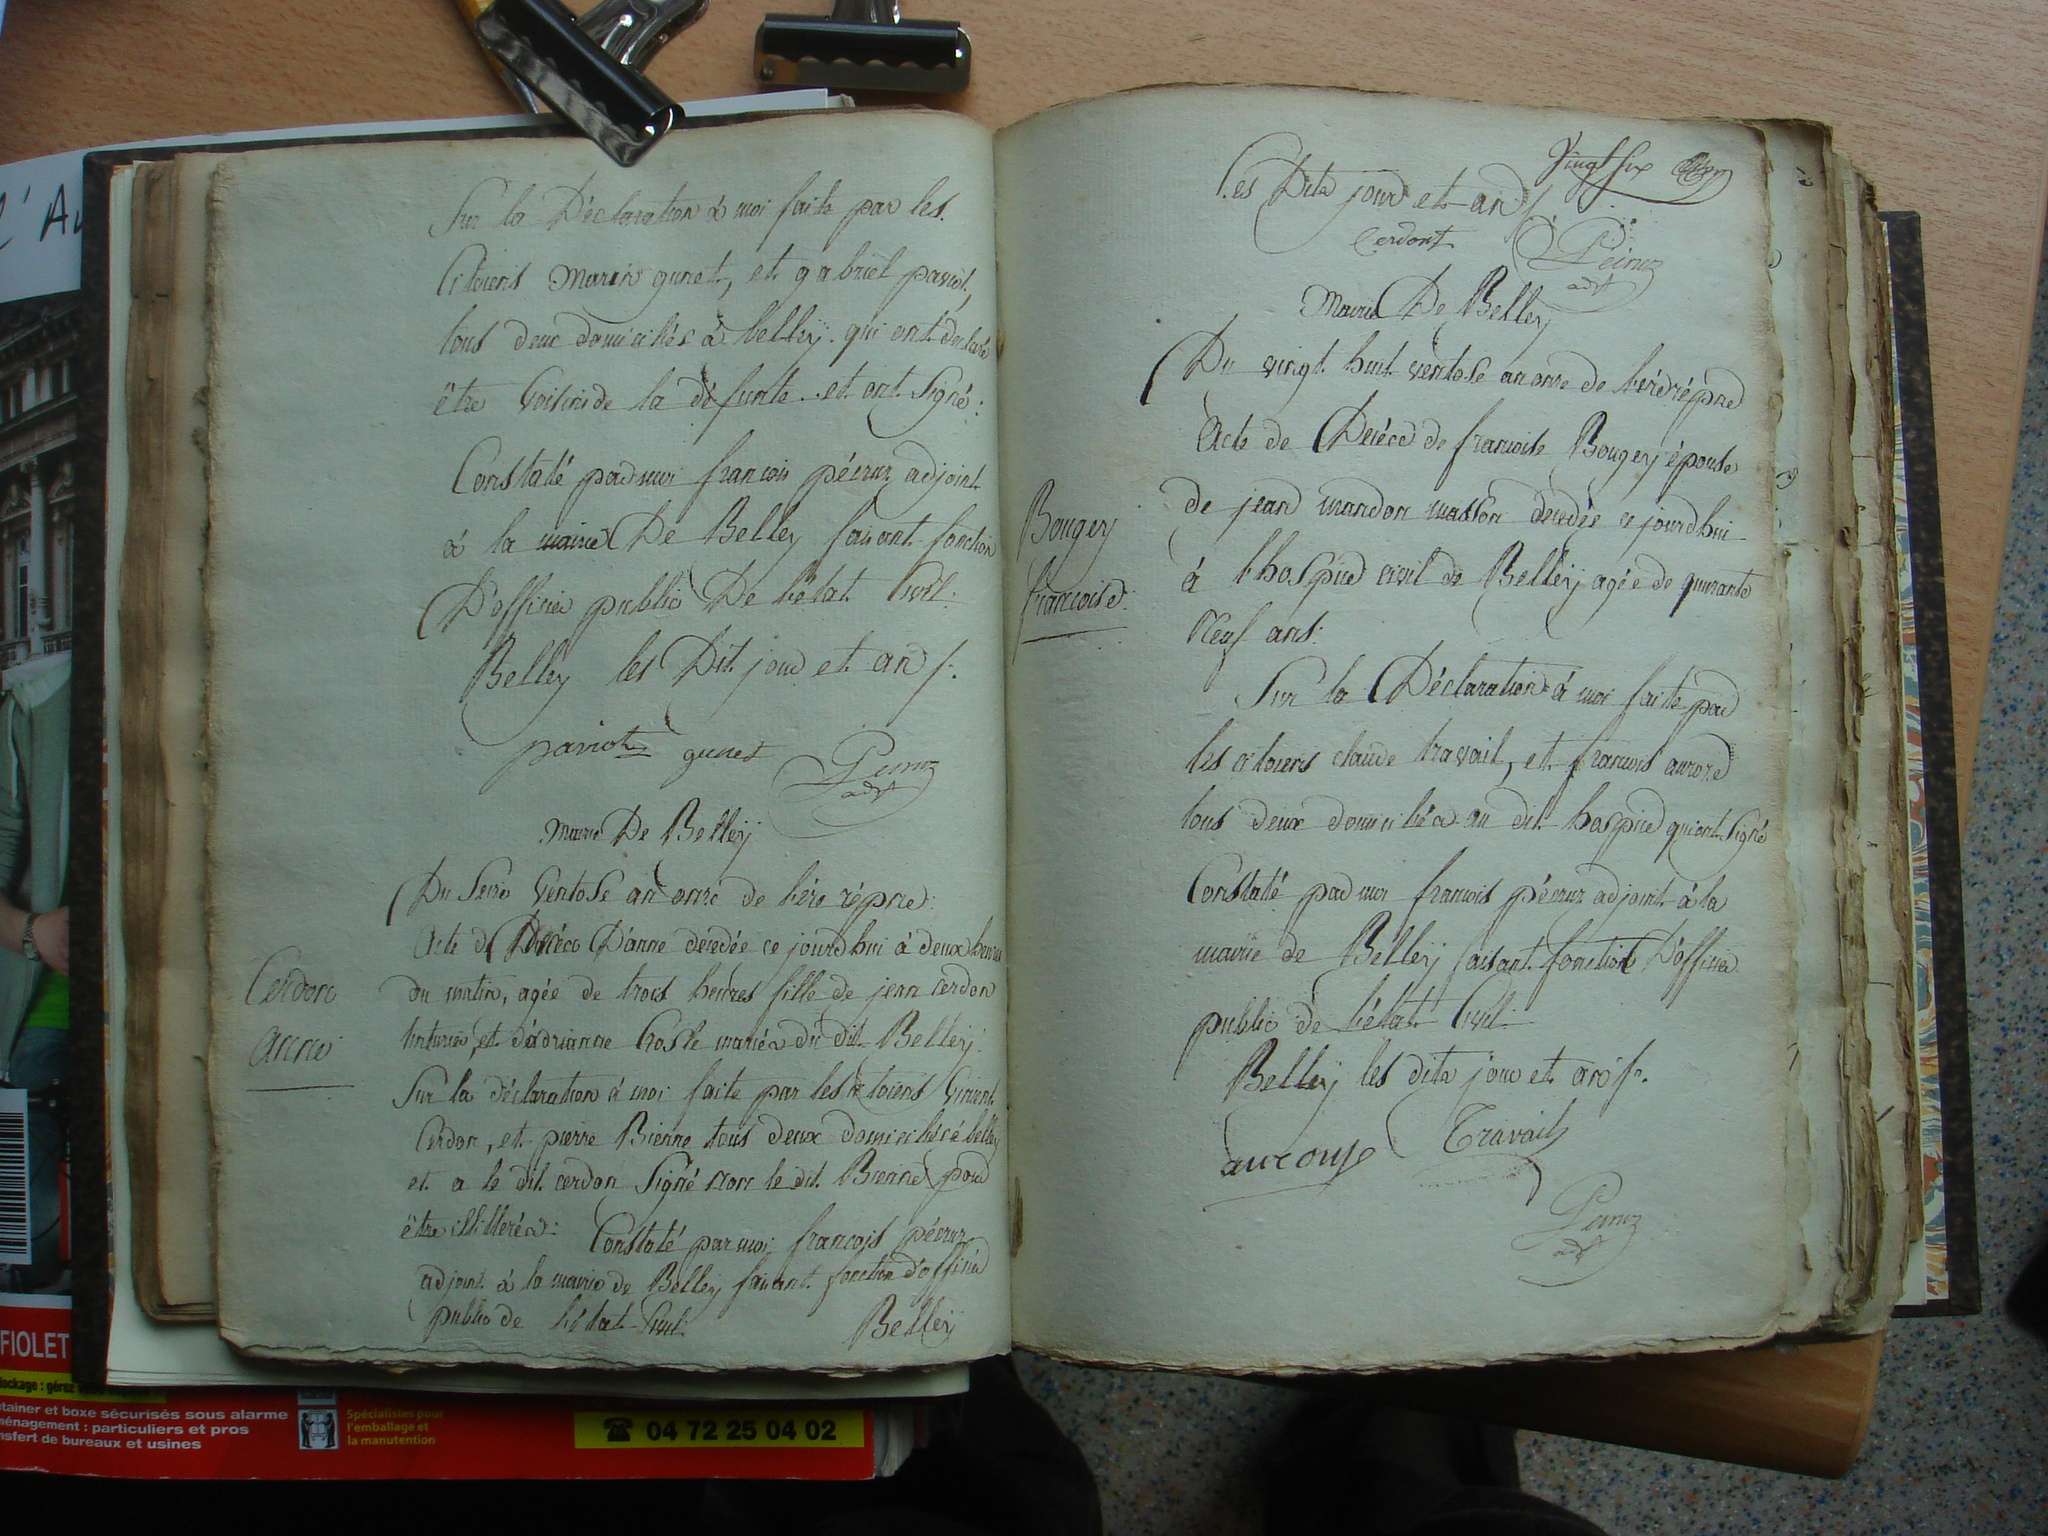 Sur la Déclaration à moi faite par les
Citoiens Marin gunet, et gabriel paviot,
tous deux domiciliés à belleÿ qui ont déclaré
être voisins de la défunte et ont signé:
Constaté par moi françois péeruz adjoint
à la mairie De Belley faisant fonction
D'officier public De l'état Civil.
Belley les Dit jour et an /.
paviot gunet
adjt
Mairie De Belleÿ
Du Seize ventose an onze de l'ère répne
Acte de Décéc D'anne décédée ce jourd'hui à deux heures
du matin, agée de trois heures fille de jean cerdon
et d'adrianne mariés du dit Belleÿ.
Cerdon
anne
Sur la déclaration à moi faite par les citoiens Vincent
Cerdon, et pierre Bienne tous deux domiciliés à belleÿ
et a le dit cerdon Signé non le dit Bienne pour
être illitéré: Constaté par moi françois péeruz
adjoint à la mairie de Belley faisant fonction d'officier
public de l'état Civil Belleÿ
Vingt six
Les Dits jour et an /
Cerdont
adjt
Mairie De Belleÿ
Du vingt huit ventose an onze de l'ère répne
Acte de Décéc de francoise Bougeÿ épouse
de jean mandon masson décédée ce jourd'hui
à l'hospice civil de Belleÿ agée de quarante
Neuf ans:
Bougeÿ
francoise
Sur la Déclaration à moi faite par
les citoiens claude travail, et françois aurore
tous deux domiciliés au dit hospice qui ont Signé
Constaté par moi françois péeruz adjoint à la
mairie de Belleÿ faisant fonction D'officier
public de l'état Civil.
Belleÿ les dits jour et an /.
Travail
adjt
l'Au
FIOLET
04 72 25 04 02
tainer et boxe sécurisés sous alarme
nénagement : particuliers et pros
nsfert de bureaux et usines
Spécialistes pour
l'emballage et
la manutention